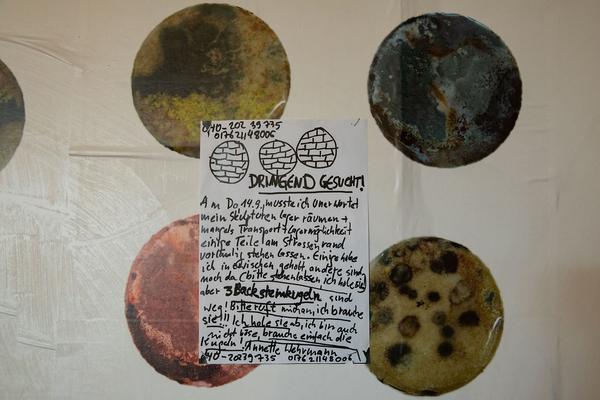 040-202 39 735
017621148006
DRINGEND GESUCHT!
Am Do 14.9. musste ich unerwartet
mein Skulpturenlager räumen +
mangels Transport + Lagermöglichkeit
einige Teile am Strassenrand
vorläufig stehen lassen. Einige habe
ich inzwischen geholt, andere sind
noch da (bitte stehenlassen ich hole sie)
aber 3 Backsteinkugeln sind
weg! Bitte ruft mich an, ich brauche
sie!!! Ich hole sie ab, ich bin auch
nicht böse, brauche einfach die
Kugeln! Annette Wehrmann
040-20239735 017621148006